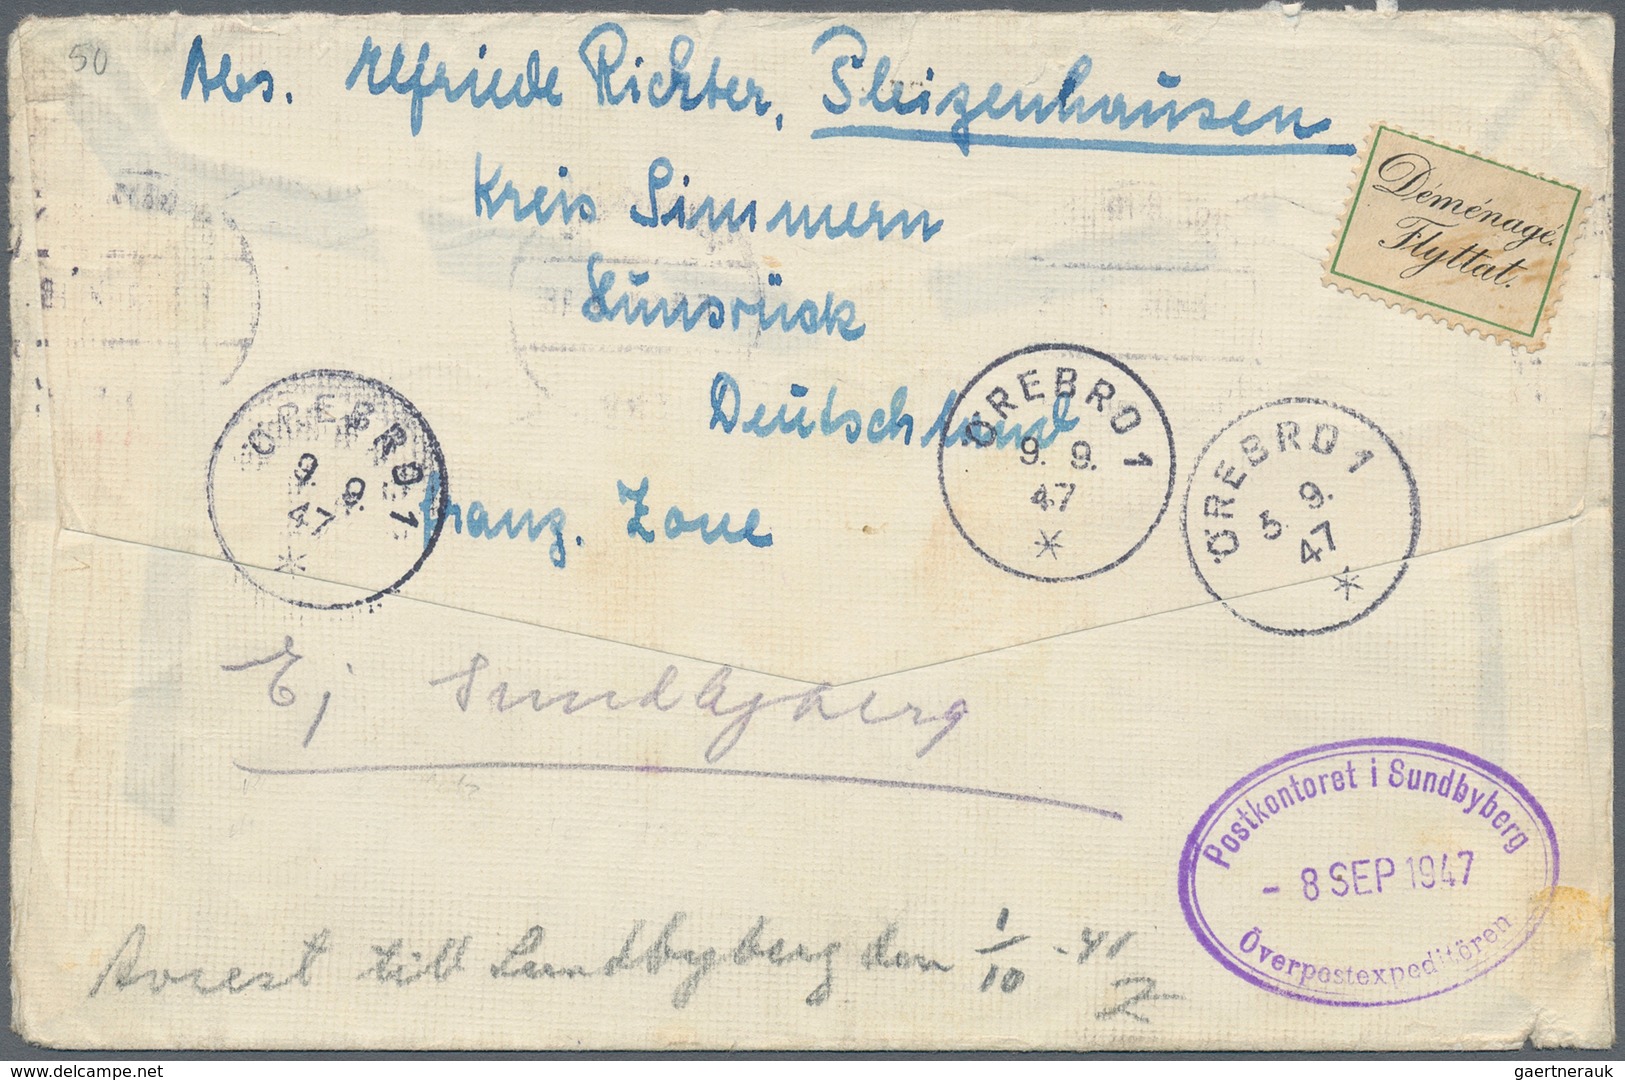 50
Abs. Elfriede Richter, Pleizenhausen
Kreis Simmern
Hunsrück
Deutschland
franz. Zone
Déménagé.
Flyttat.
ÖREBRO 1
9. 9.
47
ÖREBRO 1
9. 9.
47
ÖREBRO 1
5. 9.
47
Ej Sundbyberg
Postkontoret i Sundbyberg
- 8 SEP 1947
Överpostexpeditören
Avrest till Sundbyberg den 1/10 -41
delcampe.net
gaertnerauk